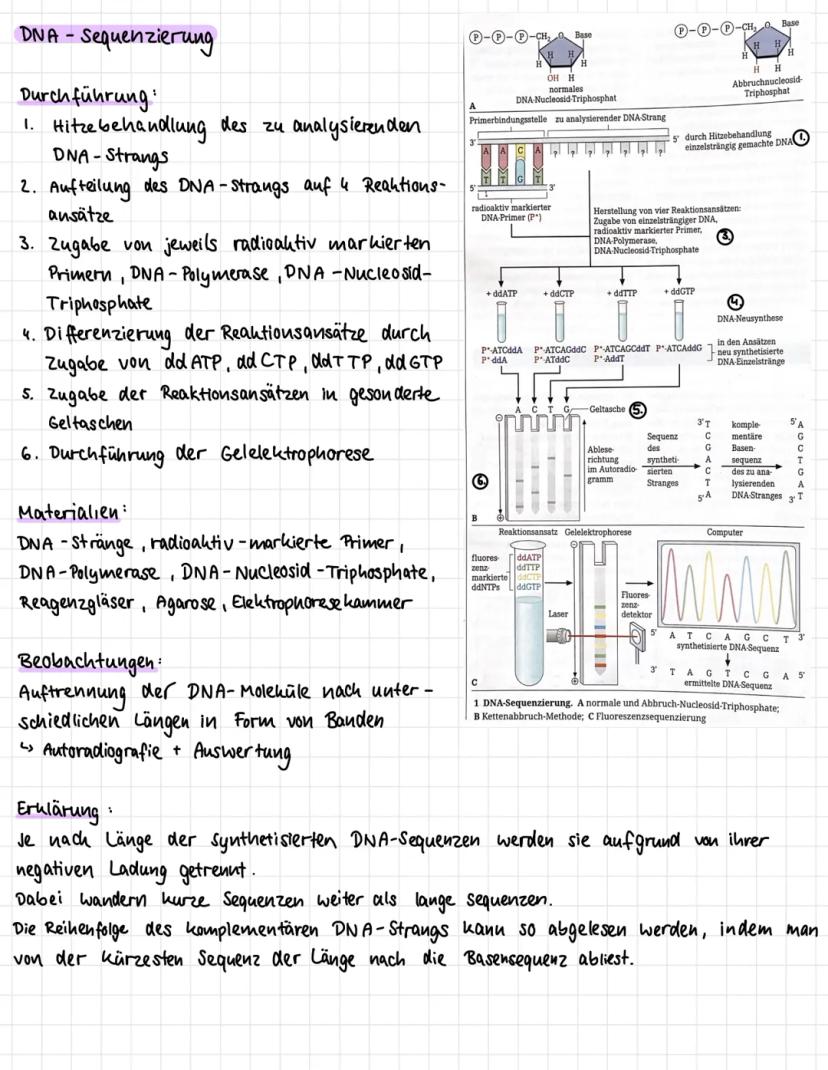 DNA - Sequenzierung
Durchführung:
1. Hitzebehandlung des zu analysierenden
DNA - Strangs
2. Aufteilung des DNA - Strangs auf 4 Reaktions-
ansätze
3. Zugabe von jeweils radioaktiv markierten
Primern, DNA - Polymerase, DNA - Nucleosid-
Triphosphate
4. Differenzierung der Reaktionsansätze durch
Zugabe von ddATP, ddCTP, ddTTP, ddGTP
5. Zugabe der Reaktionsansätzen in gesonderte
Geltaschen
6. Durchführung der Gelelektrophorese
Materialien:
DNA - Stränge, radioaktiv - markierte Primer,
DNA - Polymerase, DNA - Nucleosid - Triphosphate,
Reagenzgläser, Agarose, Elektrophoresekammer
Beobachtungen:
Auftrennung der DNA - Moleküle nach unter -
schiedlichen Längen in Form von Banden
↳ Autoradiografie + Auswertung
Erklärung:
Je nach Länge der synthetisierten DNA-Sequenzen werden sie aufgrund von ihrer
negativen Ladung getrennt.
Dabei wandern kurze Sequenzen weiter als lange Sequenzen.
Die Reihenfolge des komplementären DNA - Strangs kann so abgelesen werden, indem man
von der kürzesten Sequenz der Länge nach die Basensequenz abliest.
P-P-P-CH₂ O Base
H H H H
OH H
normales
DNA-Nucleosid-Triphosphat
P-P-P-CH₂ O Base
H H H H
H H
Abbruchnucleosid-
Triphosphat
A
Primerbindungsstelle zu analysierender DNA-Strang
3' A A C A ? ? ? ? ? ? ? 5'
5' T T G T 3'
durch Hitzebehandlung
einzelsträngig gemachte DNA 1.
radioaktiv markierter
DNA-Primer (P*)
Herstellung von vier Reaktionsansätzen:
Zugabe von einzelsträngiger DNA,
radioaktiv markierter Primer,
DNA-Polymerase,
DNA-Nucleosid-Triphosphate
3.
+ ddATP + ddCTP + ddTTP + ddGTP
4.
DNA-Neusynthese
P*-ATCddA P*-ATCAGddC P*-ATCAGCddT P*-ATCAddG
P*-ddA P*-ATddC P*-AddT
in den Ansätzen
neu synthetisierte
DNA-Einzelstränge
A C T G Geltasche 5.
⊖
Ablese-
richtung
im Autoradio-
gramm
Sequenz
des
syntheti-
sierten
Stranges
3' T
C
G
A
C
T
5' A
komple-
mentäre
Basen-
sequenz
des zu ana-
lysierenden
DNA-Stranges
5' A
G
C
T
G
A
3' T
6.
⊕
B
Reaktionsansatz Gelelektrophorese Computer
fluores-
zenz-
markierte
ddNTPs
ddATP
ddTTP
ddCTP
ddGTP
⊖
Laser
Fluores-
zenz-
detektor
⊕
5' A T C A G C T 3'
synthetisierte DNA-Sequenz
3' T A G T C G A 5'
ermittelte DNA-Sequenz
C
1 DNA-Sequenzierung. A normale und Abbruch-Nucleosid-Triphosphate;
B Kettenabbruch-Methode; C Fluoreszenzsequenzierung